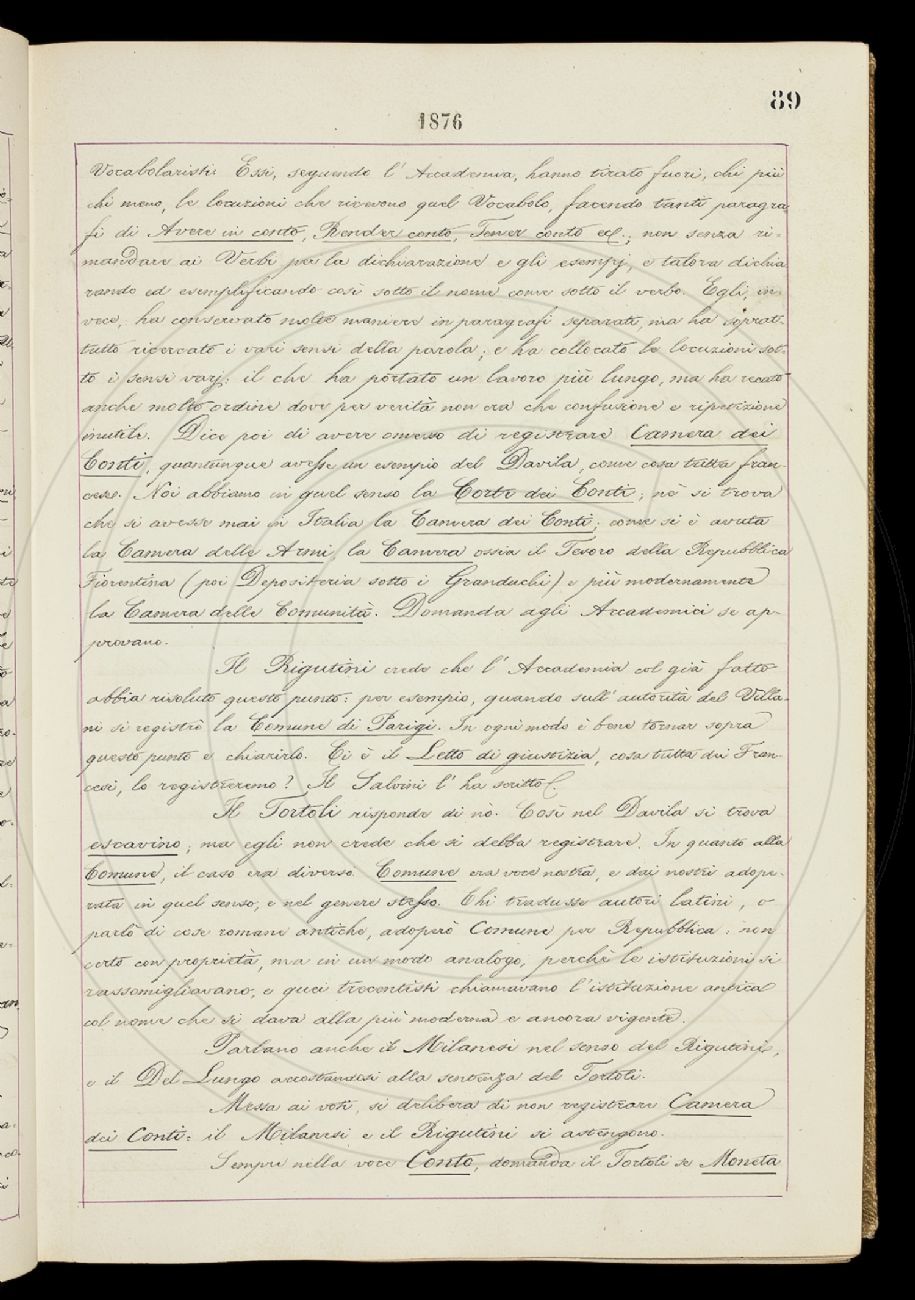 89
1876
Vocabolaristi. Essi, seguendo l' Accademia, hanno tirato fuori, chi più
chi meno, le locuzioni che ricevono quel Vocabolo, facendo tanti paragra
fi di Avere in conto, Render conto, Tener conto ecc.; non senza ri-
mandare ai Verbi per la dichiarazione e gli esempj, e talora dichia
rando ed esemplificando così sotto il nome come sotto il verbo. Egli, in-
vece, ha conservato molte maniere in paragrafi separati, ma ha soprat-
tutto ricercato i vari sensi della parola; e ha collocato le locuzioni sot-
to i sensi varj: il che ha portato un lavoro più lungo, ma ha recato
anche molto ordine dove per verità non era che confusione e ripetizione
inutile. Dice poi di avere omesso di registrare Camera dei
Conti, quantunque avesse un esempio del Davila, come cosa tutta fran-
cese. Noi abbiamo in quel senso la Corte dei Conti; nè si trova
che si avesse mai in Italia la Camera dei Conti; come si è avuta
la Camera delle Armi, la Camera ossia il Tesoro della Repubblica
Fiorentina (poi Depositeria sotto i Granduchi) e più modernamente
la Camera delle Comunità. Domanda agli Accademici se ap-
provano.
Il Rigutini crede che l' Accademia col già fatto
abbia risoluto questo punto: per esempio, quando sull' autorità del Villa-
ni si registrò la Comune di Parigi. In ogni modo è bene tornar sopra
questo punto e chiarirlo. Ci è il Letto di giustizia, cosa tutta dei Fran-
cesi, lo registreremo? Il Salvini l' ha scritto.
Il Tortoli risponde di nò. Così nel Davila si trova
escavino; ma egli non crede che si debba registrare. In quanto alla
Comune, il caso era diverso. Comune era voce nostra, e dai nostri adope-
rata in quel senso, e nel genere stesso. Chi tradusse autori latini, o
parlò di cose romane antiche, adoperò Comune per Repubblica: non
certo con proprietà, ma in un modo analogo, perchè le istituzioni si
rassomigliavano, e quei trecentisti chiamavano l'istituzione antica
col nome che si dava alla più moderna e ancora vigente.
Parlano anche il Milanesi nel senso del Rigutini,
e il Del Lungo accostandosi alla sentenza del Tortoli.
Messa ai voti, si delibera di non registrare Camera
dei Conti: il Milanesi e il Rigutini si astengono.
Sempre nella voce Conto, domanda il Tortoli se Moneta